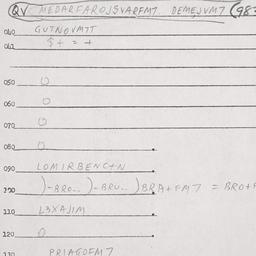 QV MEDARFAROJSVARFM7 DEMEJVM7 (98
040 GUTNOVM7T
041 $ + = +
050 O
060 O
070 O
080 O
090 LOMIRBENC+N
100 )-BRO.. )-BRU.. )BRA+FM7 = BRO+F
110 L3XAJIM
120 O
130 PRIAGOFM7